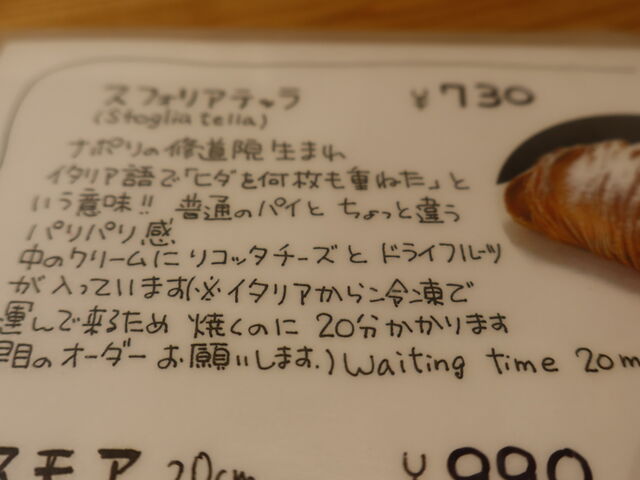 スフォリアテッラ ￥730
(Sfogliatella)
ナポリの修道院生まれ
イタリア語で「ヒダを何枚も重ねた」と
いう意味!! 普通のパイと ちょっと違う
パリパリ感
中のクリームにリコッタチーズと ドライフルーツ
が入っています(※イタリアから冷凍で
運んで来るため 焼くのに 20分かかります
早目のオーダーお願いします.) Waiting time 20m
スモア 20cm ￥990